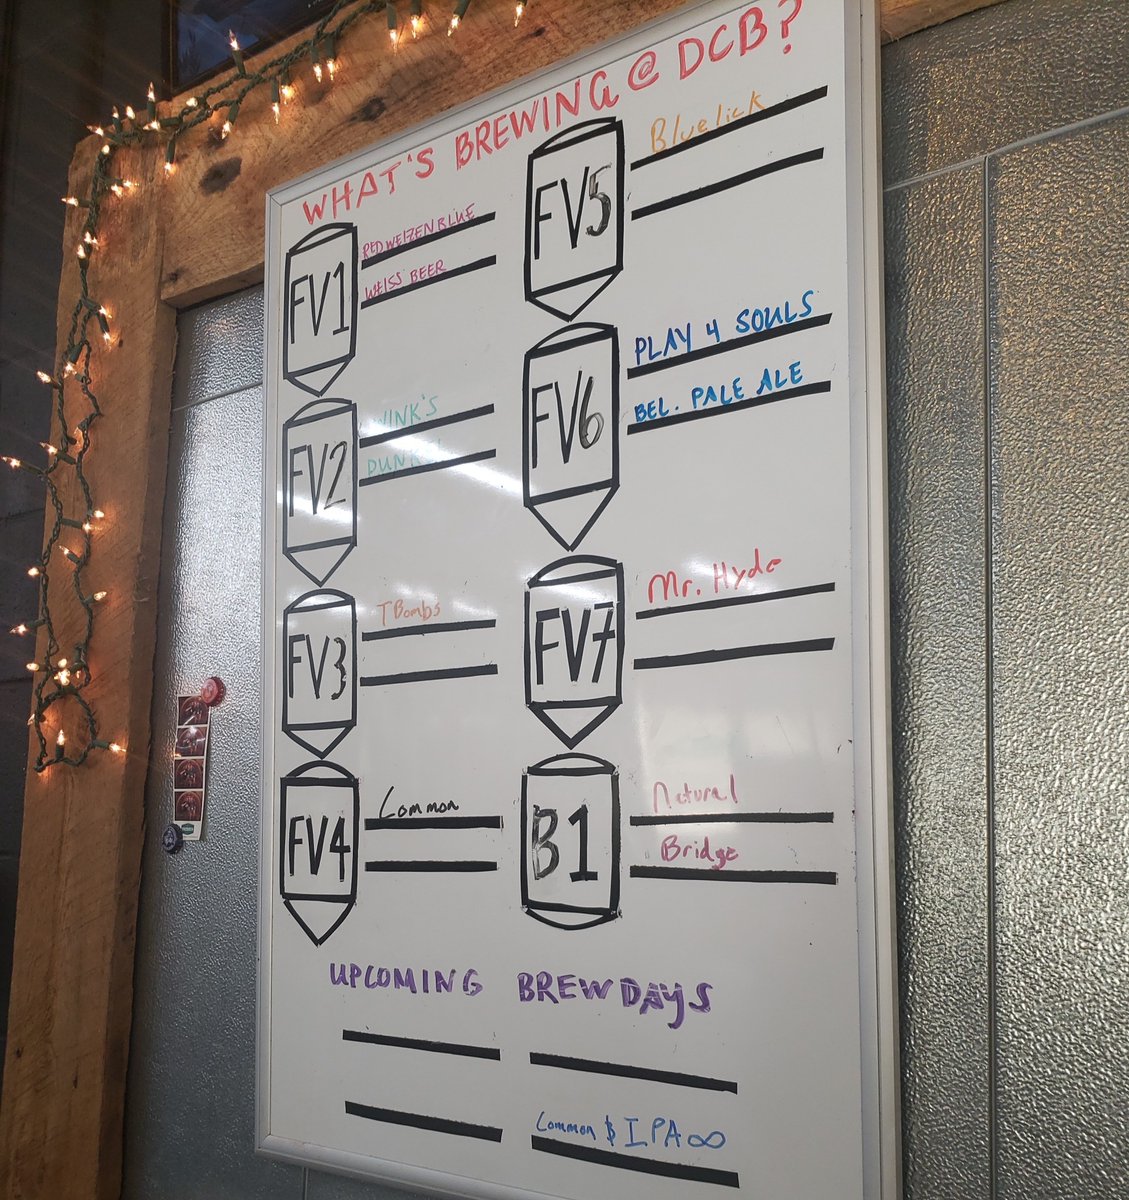 WHAT'S BREWING @ DCB?
FV1
RED WEIZEN BLUE
WEISS BEER
FV2
WINK'S
FV3
T Bombs
FV4
Common
FV5
Bluelick
FV6
PLAY 4 SOULS
BEL. PALE ALE
FV7
Mr. Hyde
B1
Natural
Bridge
UPCOMING BREW DAYS
Common $ IPA ∞